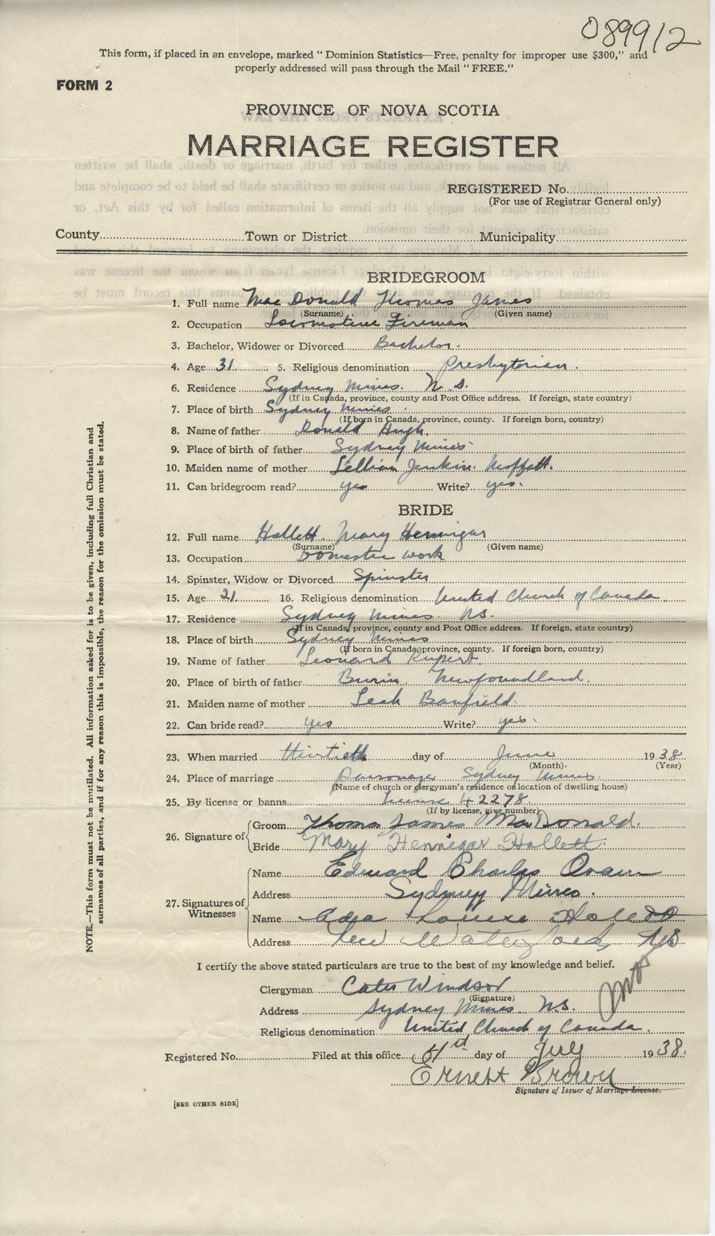 089912
This form, if placed in an envelope, marked "Dominion Statistics—Free, penalty for improper use $300," and
properly addressed will pass through the Mail "FREE."
FORM 2
PROVINCE OF NOVA SCOTIA
MARRIAGE REGISTER
REGISTERED No.
(For use of Registrar General only)
County Town or District Municipality
BRIDEGROOM
1. Full name MacDonald Thomas James
(Surname) (Given name)
2. Occupation Locomotive Fireman
3. Bachelor, Widower or Divorced Bachelor.
4. Age 31 5. Religious denomination Presbyterian.
6. Residence Sydney Mines. N.S.
(If in Canada, province, county and Post Office address. If foreign, state country)
7. Place of birth Sydney Mines.
(If born in Canada, province, county. If foreign born, country)
8. Name of father Donald Hugh.
9. Place of birth of father Sydney Mines
10. Maiden name of mother Lillian Jenkin Moffett.
11. Can bridegroom read? yes Write? yes.
BRIDE
12. Full name Hollett. Mary Hennigar
(Surname) (Given name)
13. Occupation Domestic work
14. Spinster, Widow or Divorced Spinster
15. Age 21 16. Religious denomination United Church of Canada.
17. Residence Sydney Mines N.S.
(If in Canada, province, county and Post Office address. If foreign, state country)
18. Place of birth Sydney Mines
(If born in Canada, province, county. If foreign born, country)
19. Name of father Leonard Rupert.
20. Place of birth of father Burin, Newfoundland.
21. Maiden name of mother Leah Banfield
22. Can bride read? yes Write? yes.
23. When married thirtieth day of June 1938
(Month) (Year)
24. Place of marriage Parsonage Sydney Mines
(Name of church or clergyman's residence or location of dwelling house)
25. By license or banns license 42278
(If by license, give number)
26. Signature of Groom Thomas James MacDonald.
Bride Mary Hennigar Hollett.
27. Signatures of Witnesses Name Edward Charles Oram
Address Sydney Mines.
Name Louise Hollett
Address New Waterford, NS
I certify the above stated particulars are true to the best of my knowledge and belief.
Clergyman Cater Windsor
(Signature)
Address Sydney Mines N.S.
Religious denomination United Church of Canada.
Registered No. Filed at this office day of July 1938.
Ernest Brown
Signature of Issuer of Marriage License.
[SEE OTHER SIDE]
NOTE.—This form must not be mutilated. All information asked for is to be given, including full Christian and
surnames of all parties, and if for any reason this is impossible, the reason for the omission must be stated.